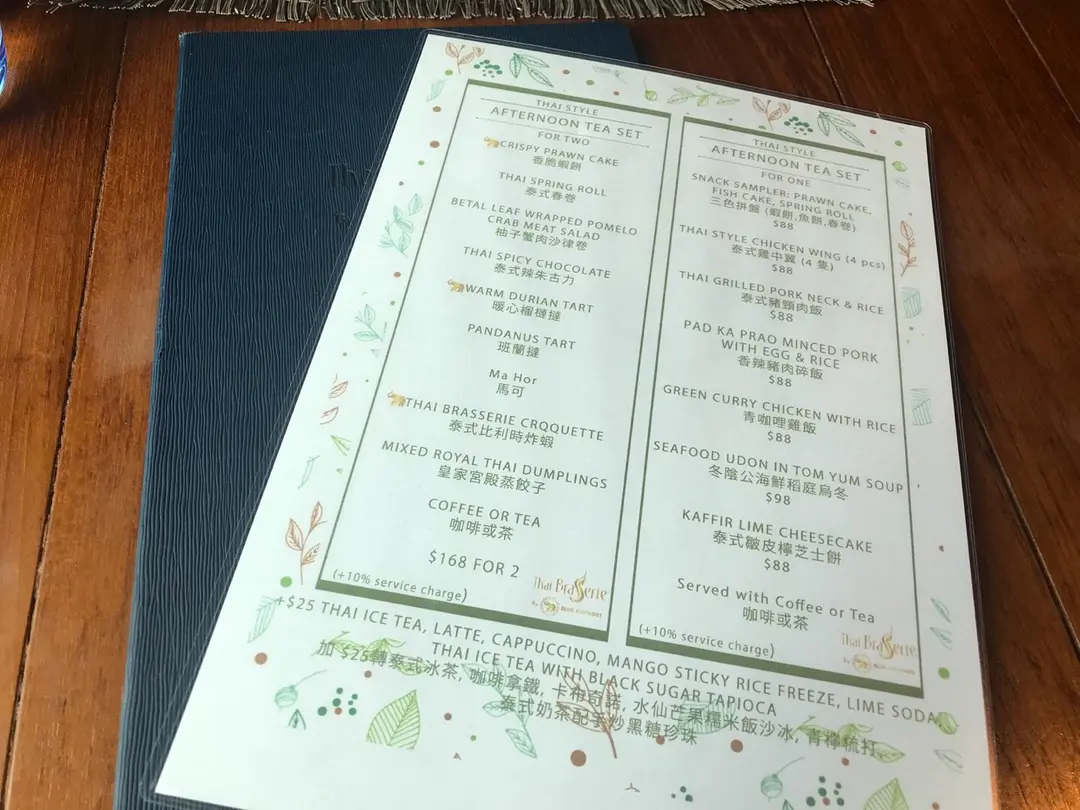 THAI STYLE
AFTERNOON TEA SET
FOR TWO
CRISPY PRAWN CAKE
香脆蝦餅
THAI SPRING ROLL
泰式春卷
BETAL LEAF WRAPPED POMELO
CRAB MEAT SALAD
柚子蟹肉沙律卷
THAI SPICY CHOCOLATE
泰式辣朱古力
WARM DURIAN TART
暖心榴槤撻
PANDANUS TART
班蘭撻
Ma Hor
馬可
THAI BRASSERIE CRQQUETTE
泰式比利時炸蝦
MIXED ROYAL THAI DUMPLINGS
皇家宮殿蒸餃子
COFFEE OR TEA
咖啡或茶
$168 FOR 2
(+10% service charge)
Thai Brasserie
By BLUE ELEPHANT
THAI STYLE
AFTERNOON TEA SET
FOR ONE
SNACK SAMPLER: PRAWN CAKE,
FISH CAKE, SPRING ROLL
三色拼盤 (蝦餅,魚餅,春卷)
$88
THAI STYLE CHICKEN WING (4 pcs)
泰式雞中翼 (4 隻)
$88
THAI GRILLED PORK NECK & RICE
泰式豬頸肉飯
$88
PAD KA PRAO MINCED PORK
WITH EGG & RICE
香辣豬肉碎飯
$88
GREEN CURRY CHICKEN WITH RICE
青咖哩雞飯
$88
SEAFOOD UDON IN TOM YUM SOUP
冬陰公海鮮稻庭烏冬
$98
KAFFIR LIME CHEESECAKE
泰式皺皮檸芝士餅
$88
Served with Coffee or Tea
咖啡或茶
(+10% service charge)
Thai Brasserie
By BLUE ELEPHANT
+$25 THAI ICE TEA, LATTE, CAPPUCCINO, MANGO STICKY RICE FREEZE, LIME SODA,
THAI ICE TEA WITH BLACK SUGAR TAPIOCA
加 $25轉泰式冰茶, 咖啡拿鐵, 卡布奇諾, 水仙芒果糯米飯沙冰, 青檸梳打,
泰式奶茶配手炒黑糖珍珠